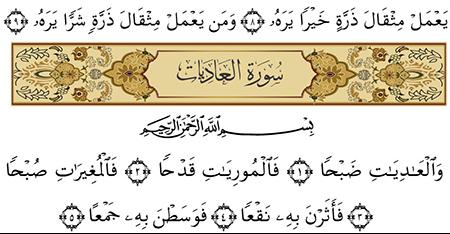 يَعْمَلْ مِثْقَالَ ذَرَّةٍ خَيْرًا يَرَهُۥ ﴿٨﴾ وَمَن يَعْمَلْ مِثْقَالَ ذَرَّةٍ شَرًّا يَرَهُۥ ﴿٩﴾
سُورَةُ العَادِيَات
بِسْمِ اللَّهِ الرَّحْمَٰنِ الرَّحِيمِ
وَٱلْعَـٰدِيَـٰتِ ضَبْحًا ﴿١﴾ فَٱلْمُورِيَـٰتِ قَدْحًا ﴿٢﴾ فَٱلْمُغِيرَٰتِ صُبْحًا
﴿٣﴾ فَأَثَرْنَ بِهِۦ نَقْعًا ﴿٤﴾ فَوَسَطْنَ بِهِۦ جَمْعًا ﴿٥﴾